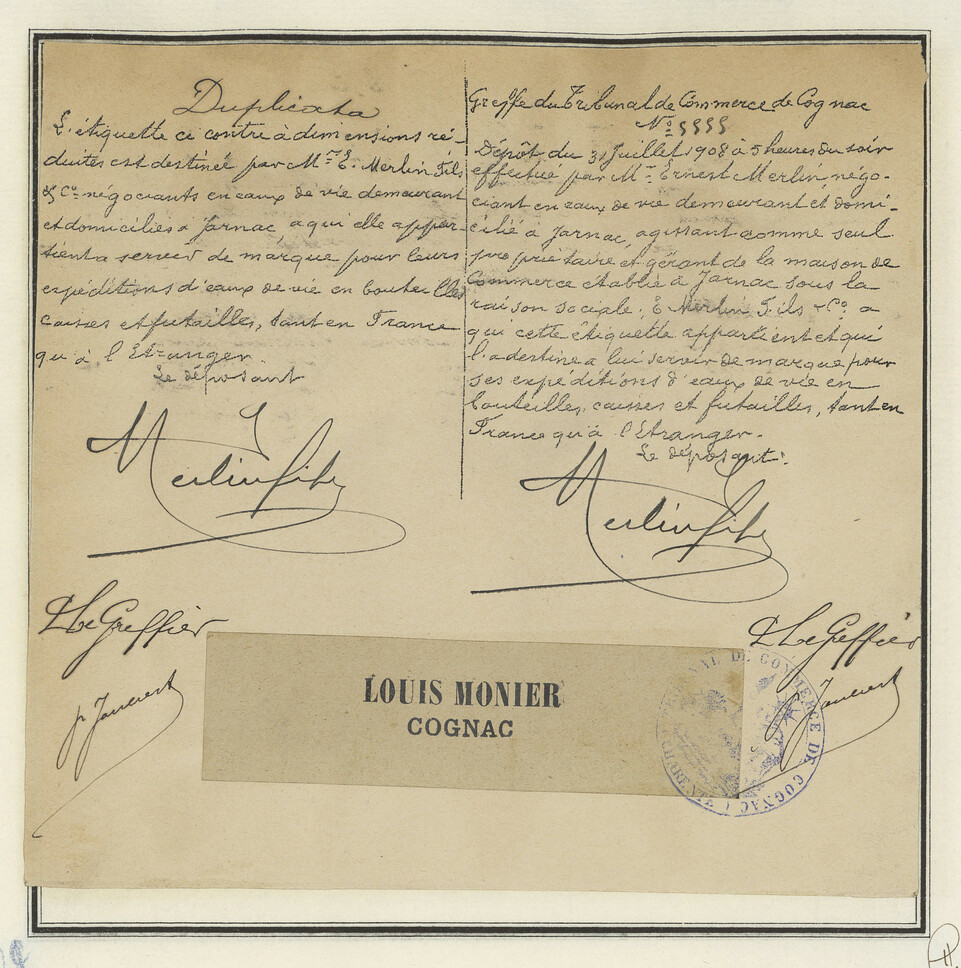 Duplicata
L'étiquette ci contre à dimensions ré-
duites est destinée par Mr E. Merlin Fils
& Co négociants en eaux de vie demeurant
et domiciliés à Jarnac, a qui elle appar-
tient a servir de marque pour leurs
expéditions d'eaux de vie en bouteilles
caisses et futailles, tant en France
qu'à l'Etranger.
Le déposant
Merlin fils
Le Greffier
Greffe du Tribunal de Commerce de Cognac
No 5555
Dépôt du 31 Juillet 1908 à 5 heures du soir
effectué par Mr Ernest Merlin négo-
ciant en eaux de vie demeurant et domi-
cilié à Jarnac, agissant comme seul
propriétaire et gérant de la maison de
Commerce établie à Jarnac sous la
raison sociale, E Merlin Fils & Co, a
qui cette étiquette appartient et qui
l'a destine a lui servir de marque pour
ses expéditions d'eaux de vie en
bouteilles, caisses et futailles, tant en
France qu'à l'Etranger.
Le déposant.
Merlin fils
Le Greffier
LOUIS MONIER
COGNAC
TRIBUNAL DE COMMERCE DE COGNAC (CHARENTE)